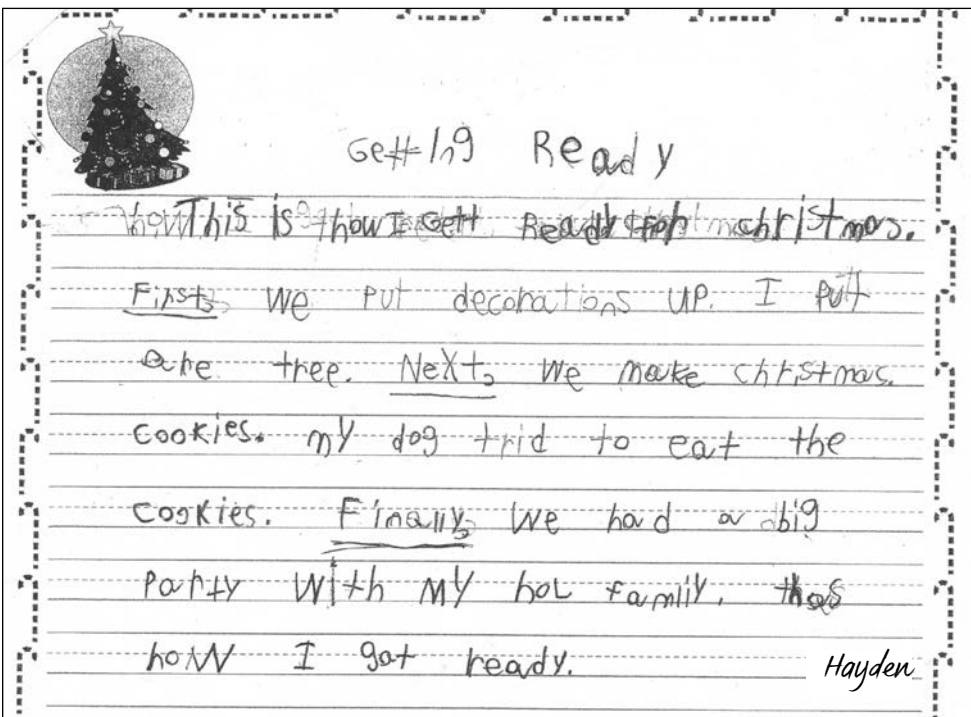 Getting Ready
This is how I Gett Ready for christmas.
First, We Put decorations UP. I Putt
are tree. NeXt, We make christmas.
cookies. my dog trid to eat the
cookies. Finally, We had a big
Party With My hol family. thas
how I got ready.
Hayden